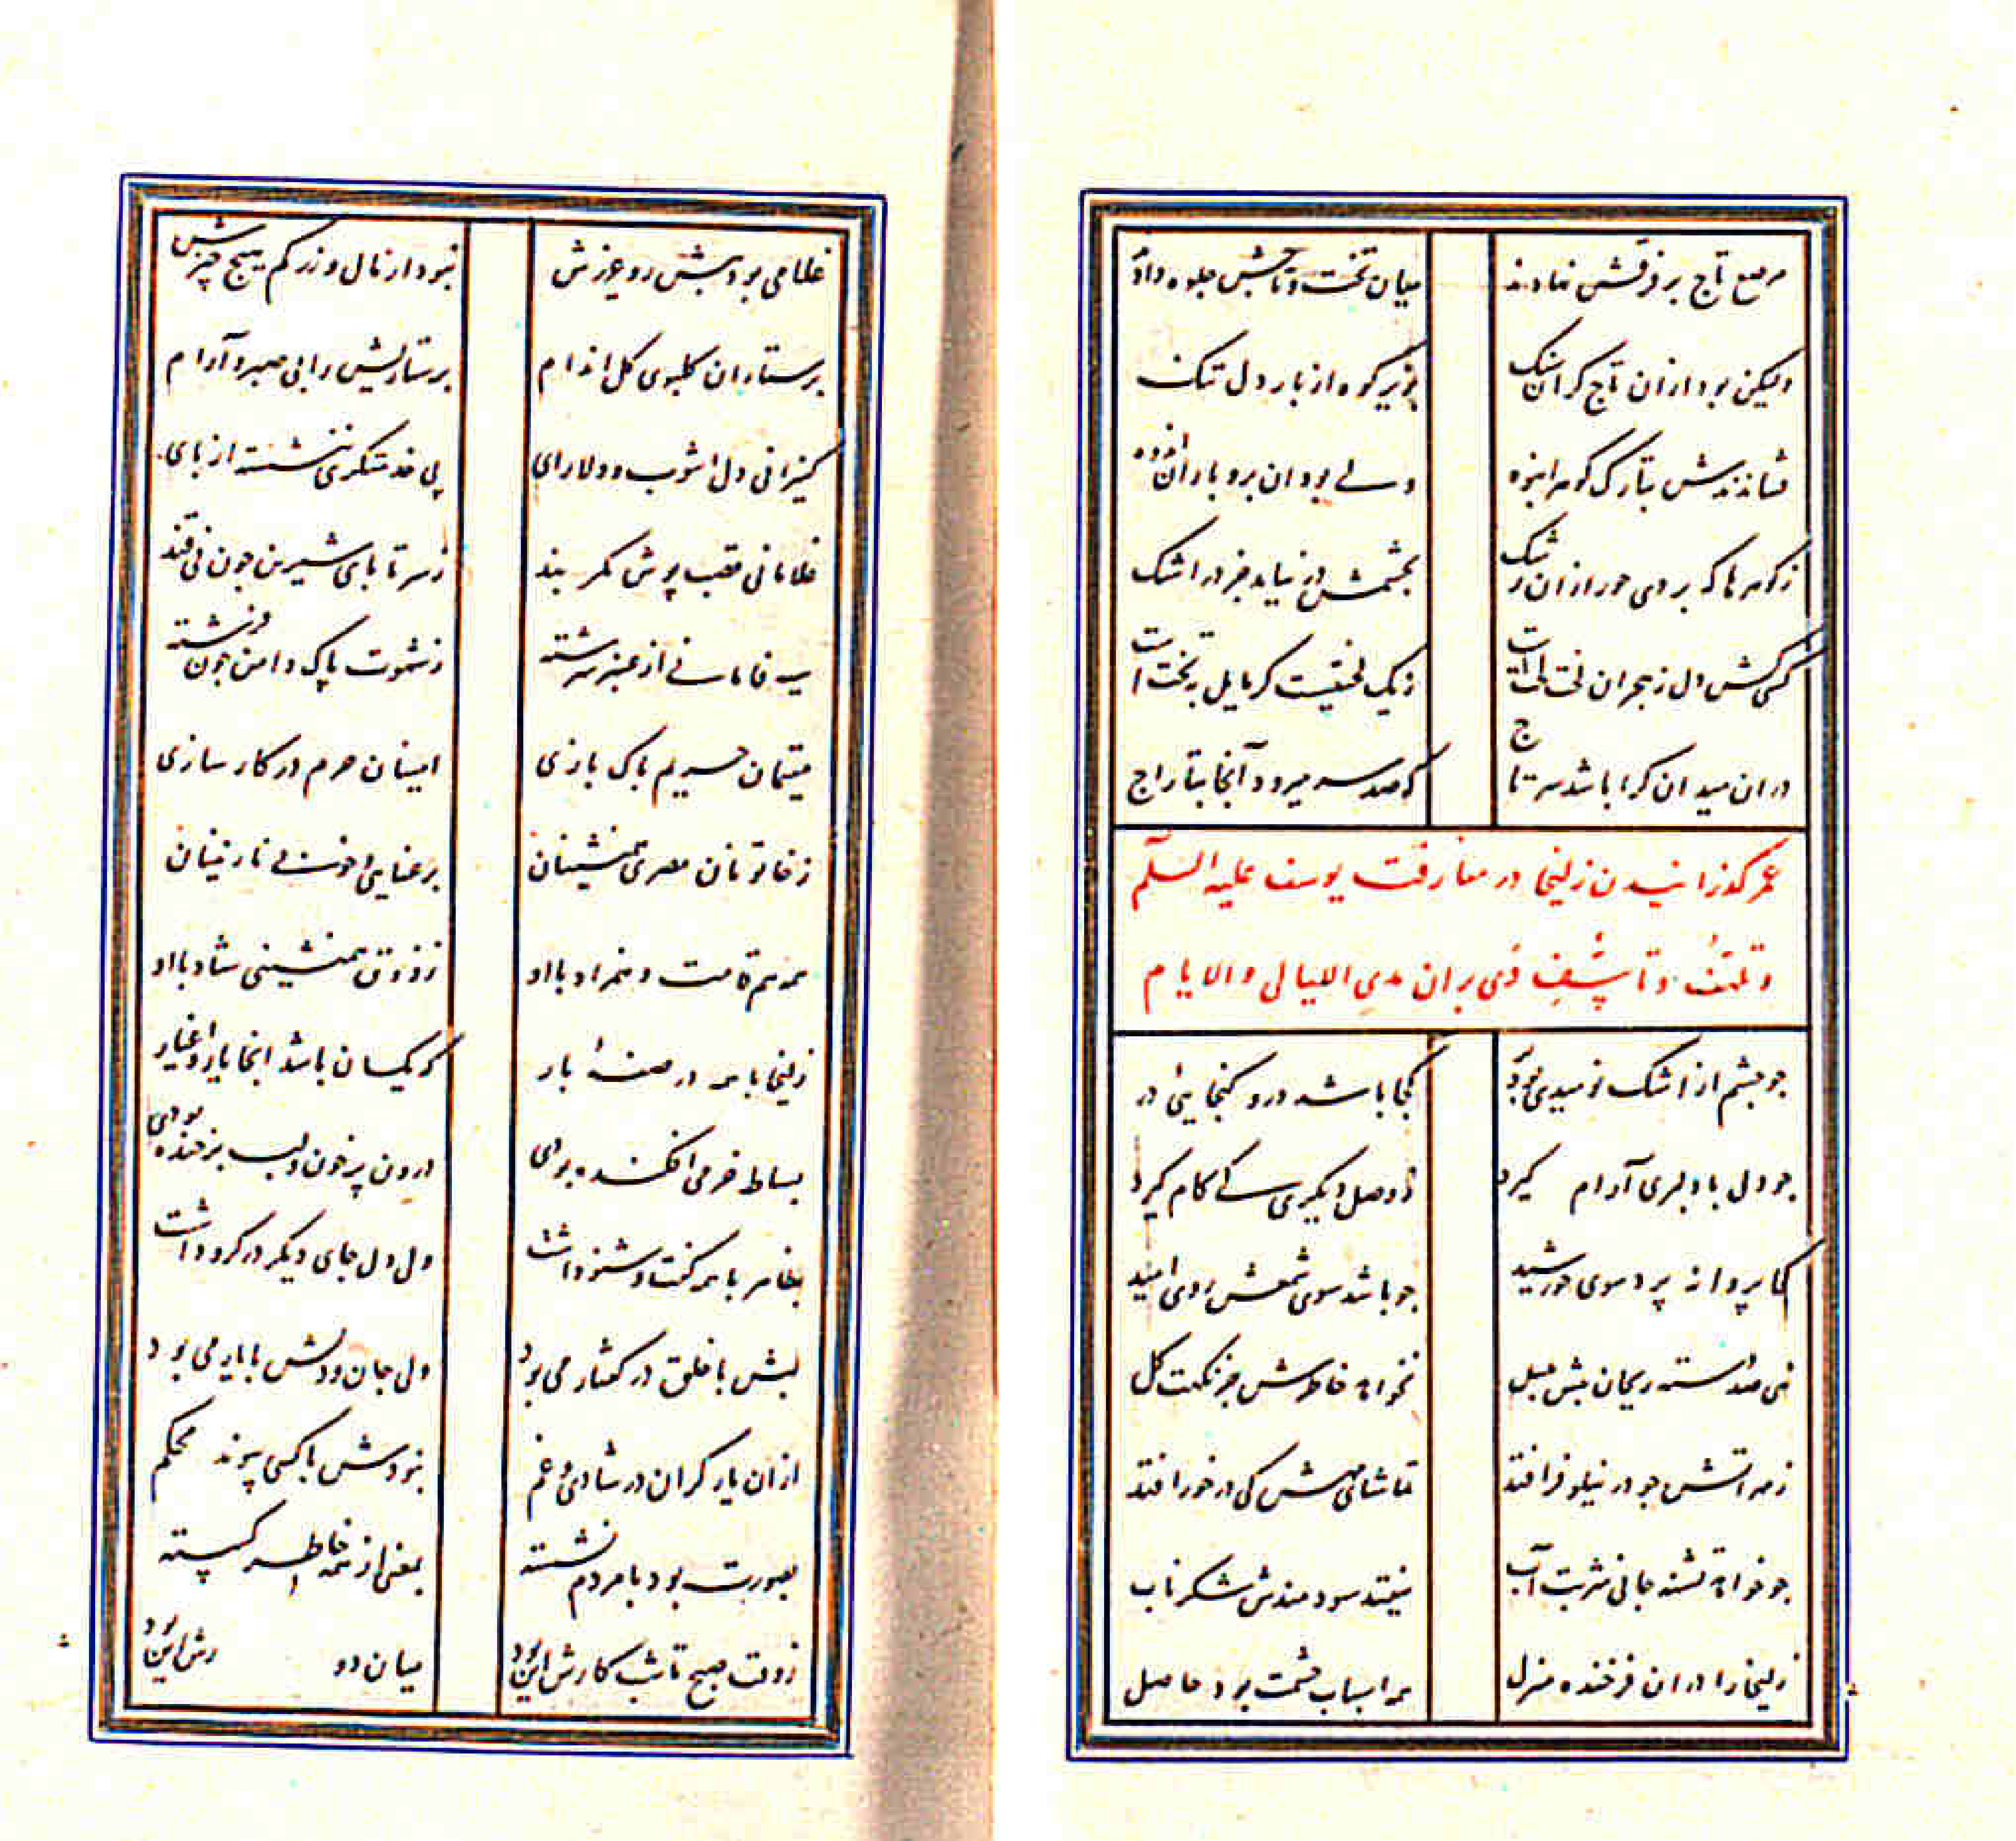 مرصع تاج بر فرقش نهادند میان تخت و تاجش جلوه داد
ولیکن بود ازان تاج کران سنک بزیر کوه از بار دل تنک
فشاندندش بتارک کوهر انبوه ولی بود ان برو باران اندوه
زکوهرها که بردی حور ازان رشک بچشمش در نیاید جز در اشک
کسی کش دل زهجران لخت لخت است زیک لختیست کر مایل بتخت است
دران میدان کرا باشد سر تاج که صد سر میرود آنجا بتاراج
عمر کذرانیدن زلیخا در مفارقت یوسف علیه السلم
و تلهف و تاسف وی بران مدی اللیالی والایام
جو جشم از اشک نومیدی بود پر کجا باشد درو کنجایی در
جو دل با دلبری آرام کیرد ز وصل دیکری کی کام کیرد
کجا پروانه پرد سوی خورشید جو باشد سوی شمعش روی امید
نهی صد دسته ریحان پیش بلبل نخواهد خاطرش جز نکهت کل
زمهر اتش جو در نیلوفر افتد تماشای مهش کی درخور افتد
جو خواهد تشنه جانی شربت آب نیفتد سودمندش شکر ناب
زلیخا را دران فرخنده منزل همه اسباب حشمت بود حاصل
غلامی بود پیش رو عزیزش نبود از مال و زر کم هیج جیزش
پرستاران کلبوی کل اندام پرستاریش را بی صبر و آرام
کنیزانی دل اشوب و دلارای پی خدمتکری ننشسته از پای
غلامانی قصب پوش کمر بند زسر تا پای شیرین جون نی قند
سیه فامانی از عنبر سرشته زشهوت پاک دامن جون فرشته
مقیمان حریم پاک بازی امینان حرم در کار سازی
زخاتونان مصری همنشینان برعنایی و خوبی نازنینان
همه هم قامت و همزاد با او زذوق همنشینی شاد با او
زلیخا با همه در صفهٔ بار که یکسان باشد انجا یار و اغیار
بساط خرمی افکنده بودی درون پر خون و لب پر خنده بودی
بظاهر با همه کفت و شنو داشت ولی دل جای دیکر در کرو داشت
لبش با خلق در کفتار می بود ولی جان و دلش با یار می بود
ازان یار کران در شادی و غم نبودش با کسی پیوند محکم
بصورت بود با مردم نشسته بمعنی از همه خاطر کسسته
زوقت صبح تا شب کارش این بود میان دو رش این بود